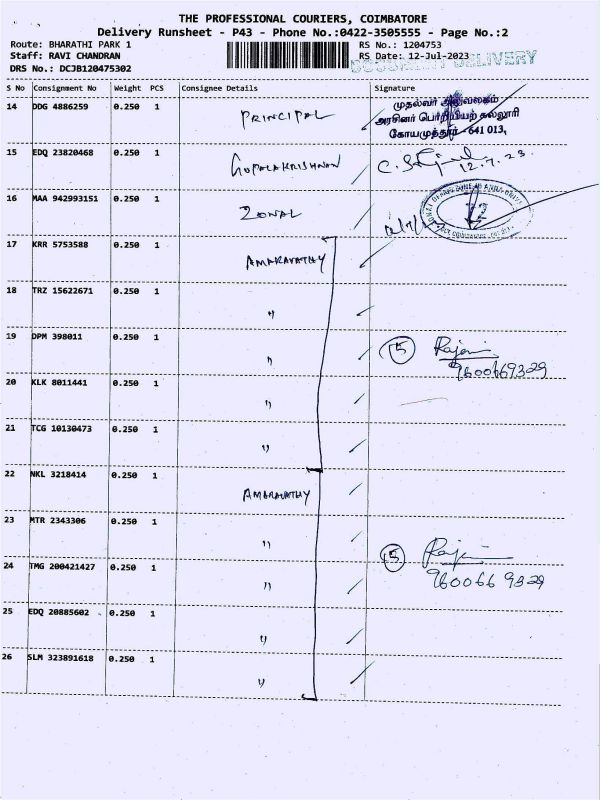 THE PROFESSIONAL COURIERS, COIMBATORE
Delivery Runsheet - P43 - Phone No.:0422-3505555 - Page No.:2
Route: BHARATHI PARK 1 RS No.: 1204753
Staff: RAVI CHANDRAN RS Date: 12-Jul-2023
DOCUMENT DELIVERY
DRS No.: DCJB120475302
S No Consignment No Weight PCS Consignee Details Signature
14 DDG 4886259 0.250 1 PRINCIPAL
முதல்வர் அலுவலகம்
அரசினர் பொறியியற் கல்லூரி
கோயமுத்தூர் - 641 013.
15 EDQ 23820468 0.250 1 GOPALAKRISHNAN 12.7.23
16 MAA 942993151 0.250 1 ZONAL
17 KRR 5753588 0.250 1 AMARAVATHY
18 TRZ 15622671 0.250 1 "
19 DPM 398011 0.250 1 " 5 Rajani
9600669329
20 KLK 8011441 0.250 1 "
21 TCG 10130473 0.250 1 "
22 NKL 3218414 0.250 1 AMARAVATHY
23 MTR 2343306 0.250 1 " 5 Rajani
24 TMG 200421427 0.250 1 " 9600669329
25 EDQ 20885602 0.250 1 "
26 SLM 323891618 0.250 1 "